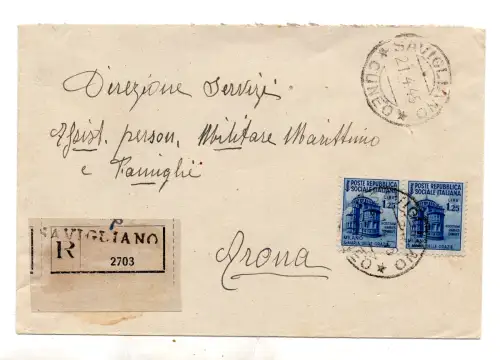 SAVIGLIANO
21.4.45
* CUNEO *
Direzione Servizi
Assist. person. Militare Marittimo
e Famiglie
POSTE REPUBBLICA
SOCIALE ITALIANA
LIRE
1.25
MILANO
POSTE REPUBBLICA
SOCIALE ITALIANA
LIRE
1.25
SAVIGLIANO
R
2703
Arona